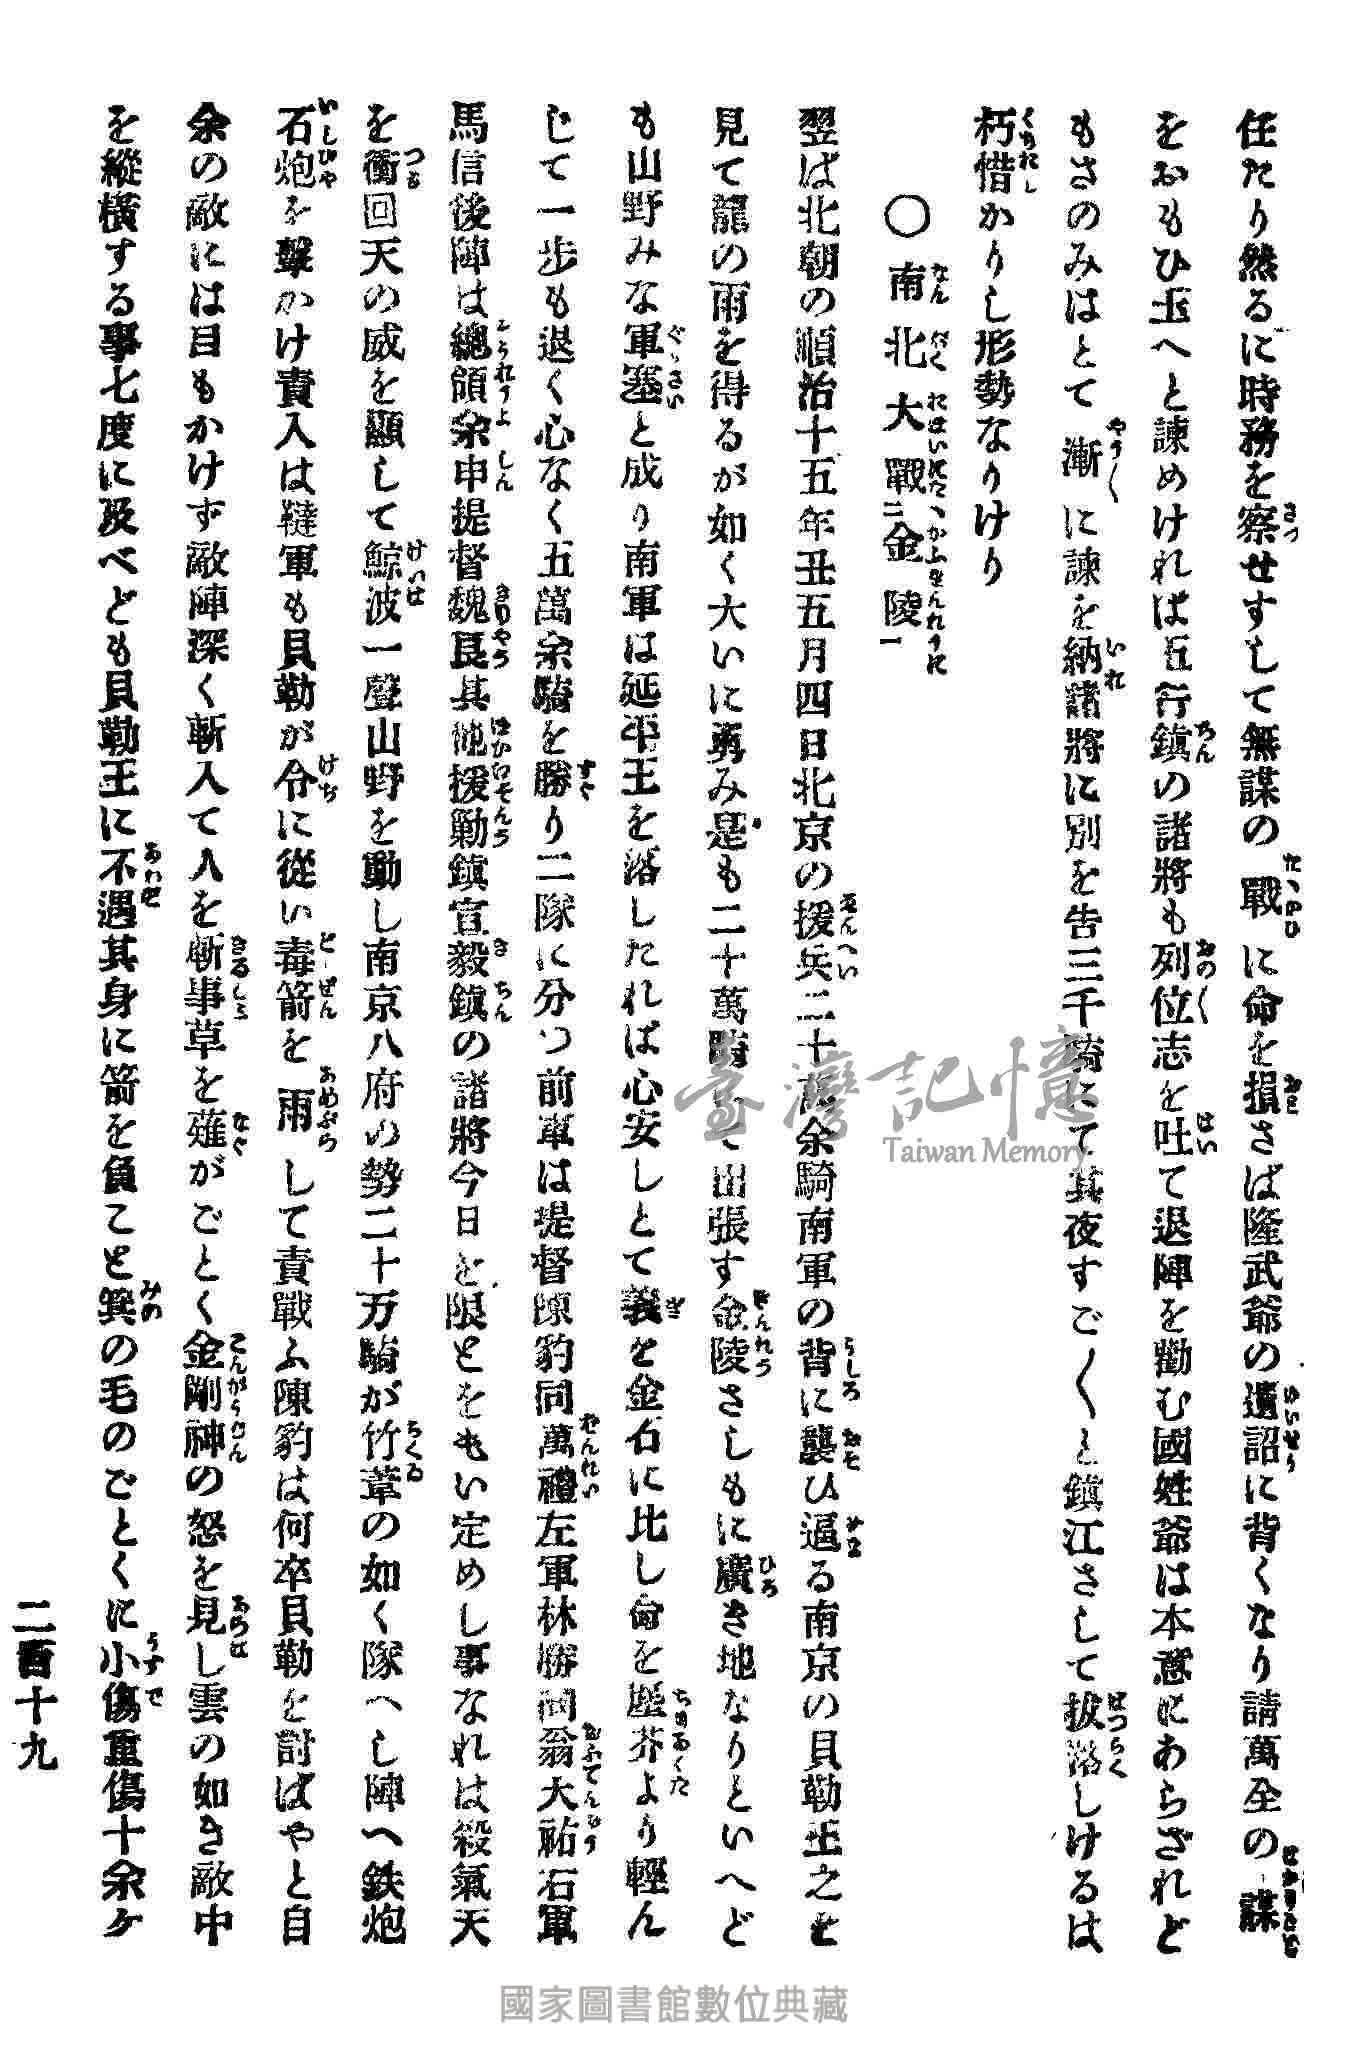 任たり然るに時務を察せすして無謀の戰に命を損さば隆武爺の遺詔に背くなり請萬全の謀
をおもひ玉へと諫めければ五行鎮の諸將も列位志を吐て退陣を勸む國姓爺は本意にあらざれど
もさのみはとて漸に諫を納諸將に別を告三千騎にて其夜すご〱と鎮江さして拔落しけるは
朽惜かりし形勢なりけり
〇南北大戰二金陵一
翌ば北朝の順治十五年丑五月四日北京の援兵二十萬余騎南軍の背に襲ひ逼る南京の貝勒王之を
見て龍の雨を得るが如く大いに勇み是も二十萬騎にて出張す金陵さしもに廣き地なりといへど
も山野みな軍塞と成り南軍は延平王を落したれば心安しとて義を金石に比し命を塵芥より輕ん
じて一步も退く心なく五萬余騎を勝り二隊に分つ前軍は提督陳豹同萬禮左軍林勝同翁大祐右軍
馬信後陣は總領余申提督魏良其他援勦鎮宣毅鎮の諸將今日を限とをもい定めし事なれは殺氣天
を衝回天の威を顯して鯨波一聲山野を動し南京八府の勢二十万騎が竹葦の如く隊へし陣へ鉄炮
石炮を擊かけ責入は韃軍も貝勒が令に從い毒箭を雨して責戰ふ陳豹は何卒貝勒を討ばやと自
余の敵には目もかけず敵陣深く斬入て人を斬事草を薙がごとく金剛神の怒を見し雲の如き敵中
を縱橫する事七度に及べども貝勒王に不遇其身に箭を負こと箕の毛のごとくに小傷重傷十余ケ
二百十九
臺灣記憶
Taiwan Memory
國家圖書館數位典藏